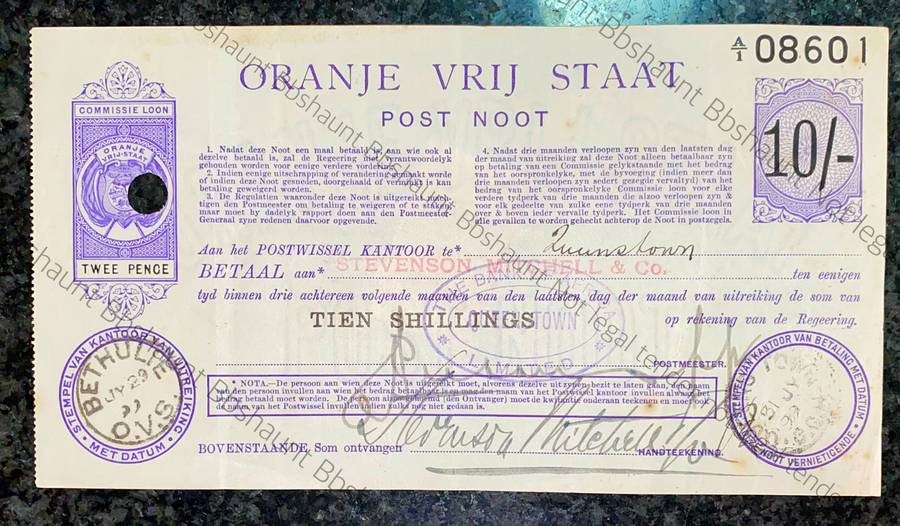 A/1 08601
ORANJE VRIJ STAAT
POST NOOT
COMMISSIE LOON
ORANJE VRIJ-STAAT
TWEE PENCE
10/-
1. Nadat deze Noot een maal betaald is, aan wie ook al
dezelve betaald is, zal de Regeering niet verantwoordelyk
gehouden worden voor eenige verdere vordering.
2. Indien eenige uitschrapping of verandering gemaakt worde
of indien deze Noot gesneden, doorgehaald of verminkt is kan
betaling geweigerd worden.
3. De Regulatien waaronder deze Noot is uitgereikt mach-
tigen den Postmeester om betaling te weigeren of te staken
maar moet hy dadelyk rapport doen aan den Postmeester-
Generaal zyne redenen daarvoor opgevende.
4. Nadat drie maanden verloopen zyn van den laatsten dag
der maand van uitreiking zal deze Noot alleen betaalbaar zyn
op betaling van een Commissie gelykstaande met het bedrag
van het oorspronkelyke, met de byvoeging (indien meer dan
drie maanden verloopen zyn sedert gezegde vervaltyd) van het
bedrag van het oorspronkelyke Commissie loon voor elke
verdere tydperk van drie maanden die aldus verloopen zyn &
voor elk gedeelte van zulke eene tydperk van drie maanden
over & boven ieder vervalle tydperk. Het Commissie loon in
alle gevallen te worden gehecht achterop de Noot in postzegels.
Aan het POSTWISSEL KANTOOR te* Queenstown
BETAAL aan* STEVENSON, MITCHELL & Co. ten eenigen
tyd binnen drie achtereen volgende maanden van den laatsten dag der maand van uitreiking de som van
TIEN SHILLINGS op rekening van de Regeering.
QUEENSTOWN
LIMITED
POSTMEESTER.
* NOTA.—De persoon aan wien deze Noot is uitgereikt moet, alvorens dezelve uit zynen bezit te laten gaan, den naam
van den persoon invullen aan wien het bedrag betaalbaar is en den naam van het Postkantoor invullen alwaar het
bedrag betaald moet worden. De persoon alzoo genoemd (den Ontvanger) moet de kwitantie onderaan teekenen en moet ook
de naam het Postwissel invullen indien zulks nog niet gedaan is.
BOVENSTAANDE Som ontvangen Stevenson Mitchell & Co HANDTEEKENING.
STEMPEL VAN KANTOOR VAN UITREIKING
MET DATUM
BETHULIE
JY 29
O.V.S.
STEMPEL VAN KANTOOR VAN BETALING MET DATUM
DE NOOT VERNIETIGENDE
Bbshaunt Not legal tender